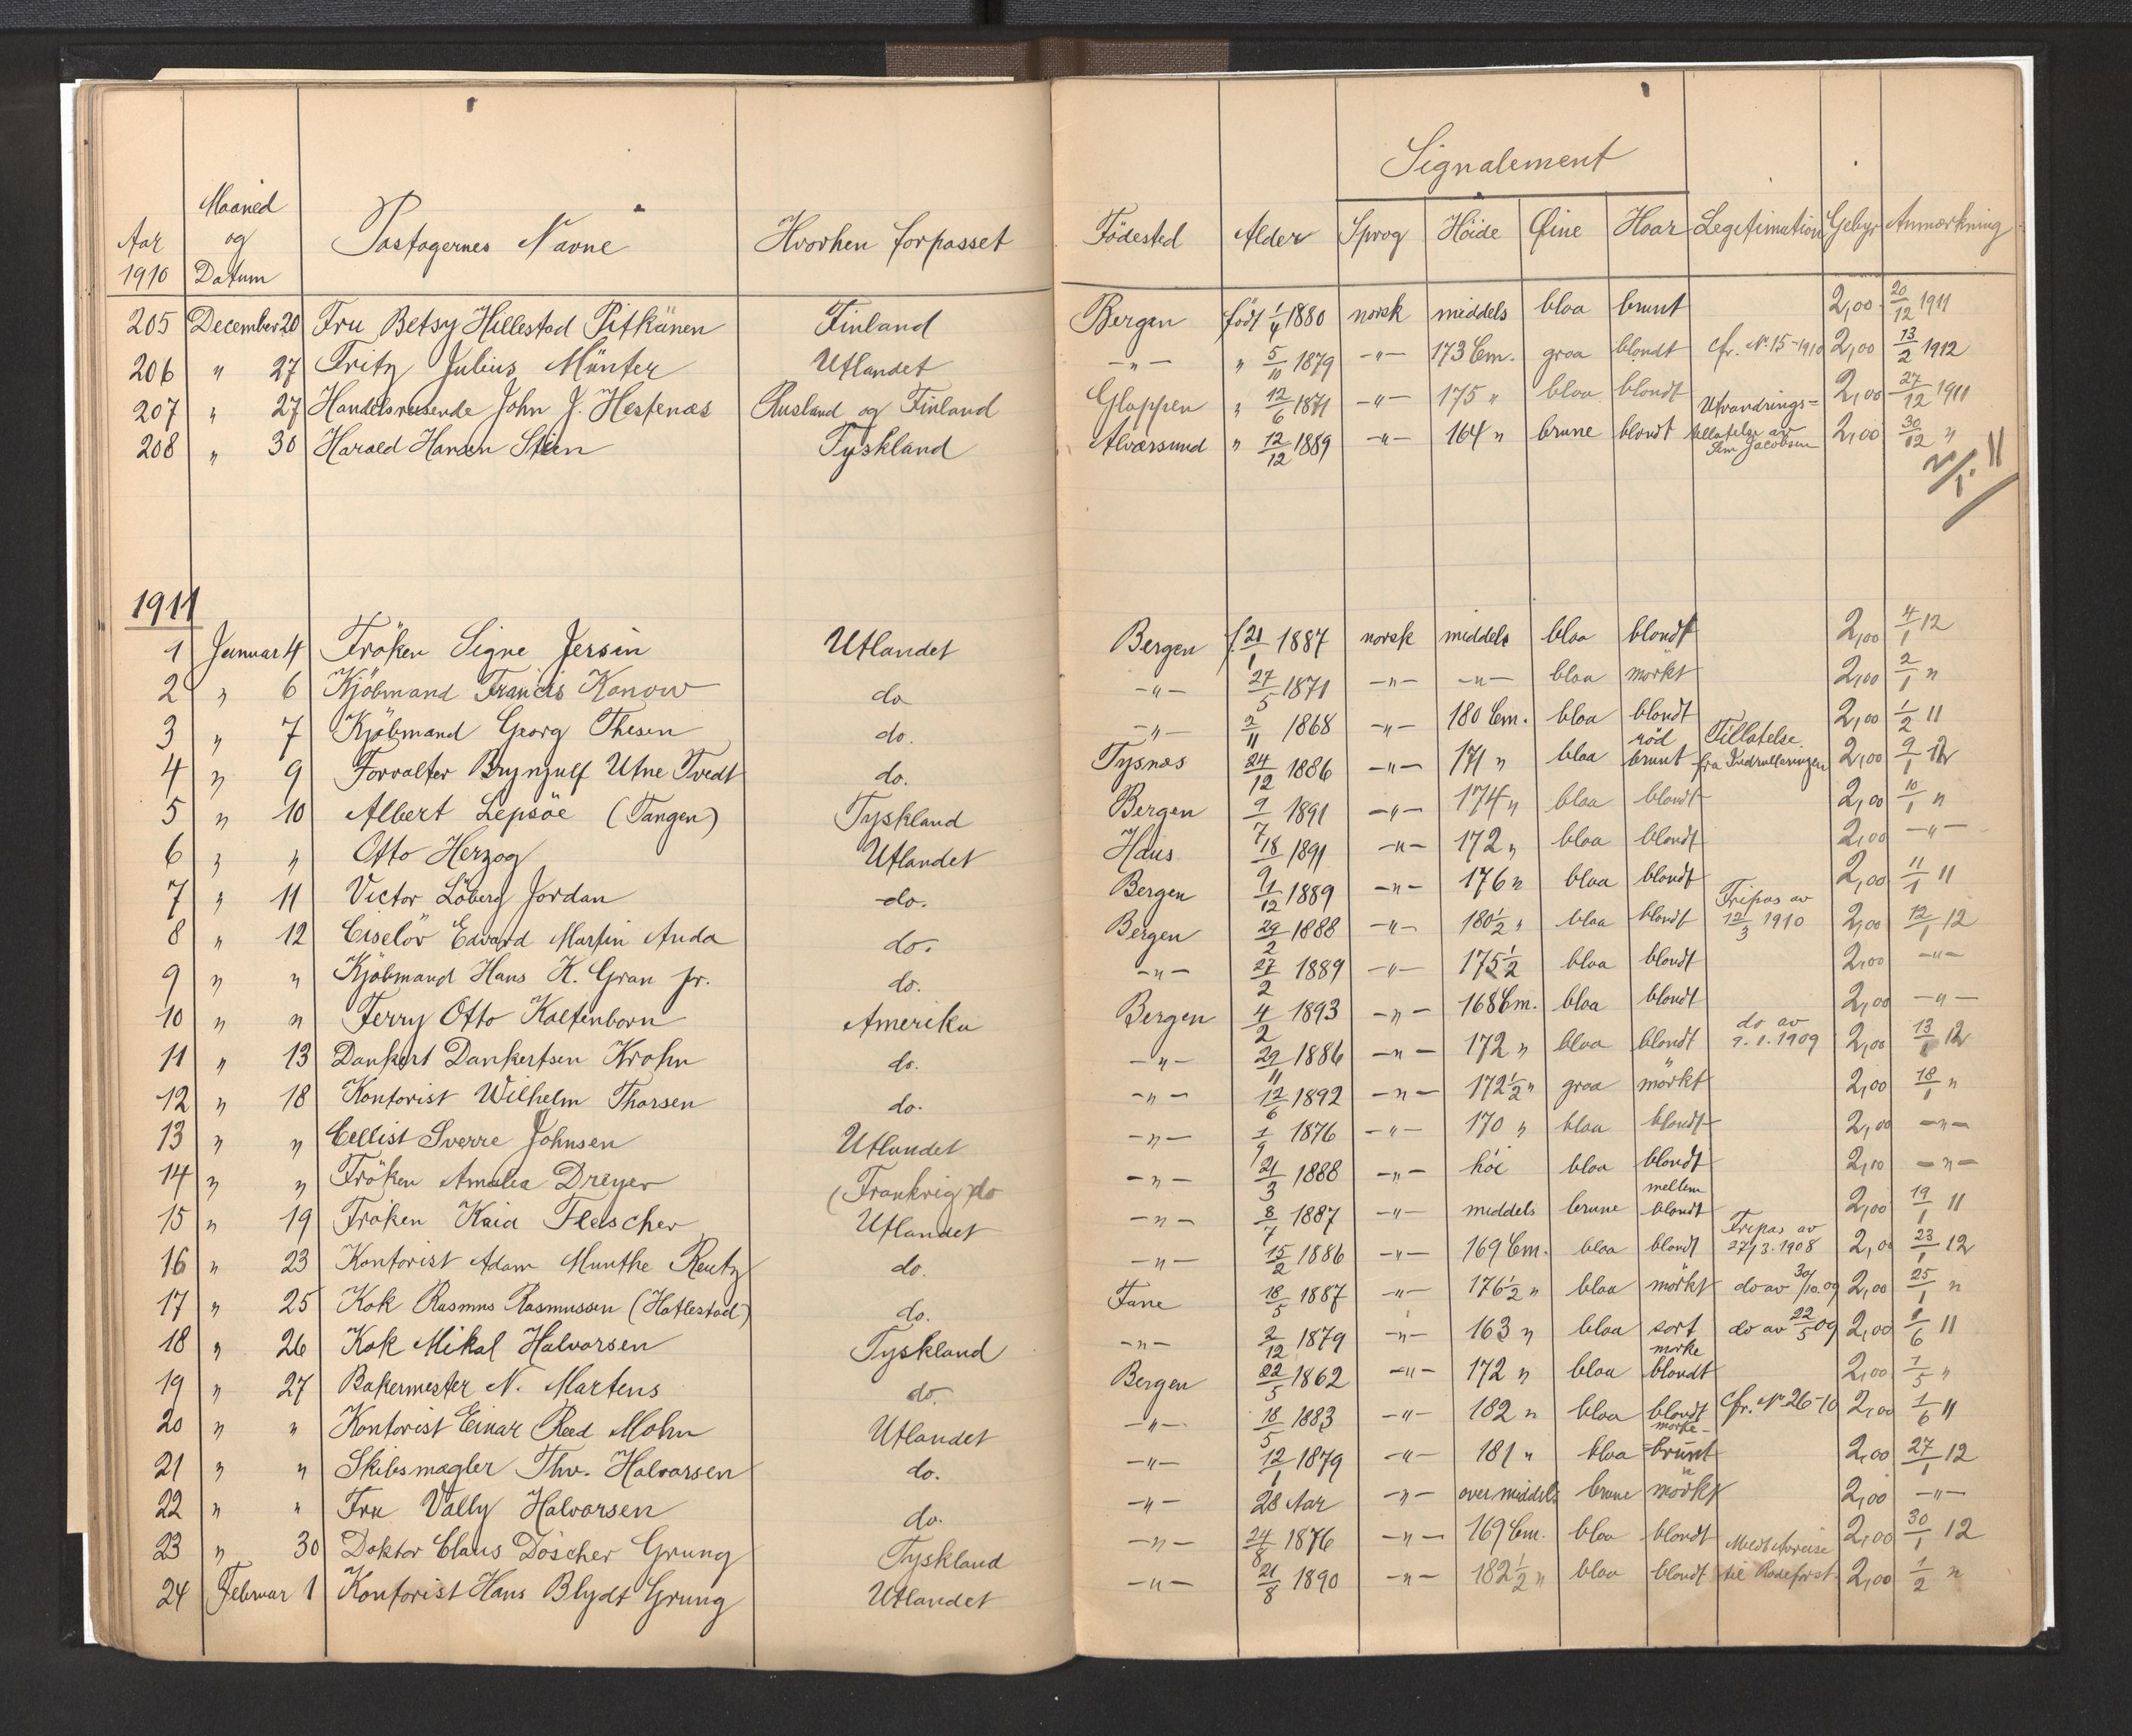 Signalement
Aar 1910 Maaned og Datum Pastagernes Navne Hvorhen forpasset Födested Alder Sprog Höide Øine Haar Legitimation Gebyr Anmærkning
205 December 20 Fru Betsy Hillestad Pitkänen Finland Bergen født 1/4 1880 norsk middels blaa brunt 2,00 20/12 1911
206 " 27 Fritz Julius Münter Utlandet -"- " 5/10 1879 -"- 173 Cm. graa blondt cfr. No 15-1910 2,00 13/2 1912
207 " 27 Handelsreisende John J. Hestenæs Rusland og Finland Gloppen " 12/6 1871 -"- 175 " blaa blondt 2,00 27/12 1911
208 " 30 Harald Hansen Stien Tyskland Alværsund " 12/12 1889 -"- 164 " brune blondt Utvandrings= tillatelse av Jacobsen 2,00 30/12 "
2/1 11
1911
1 Januar 4 Fröken Signe Jersin Utlandet Bergen f. 21/1 1887 norsk middels blaa blondt 2,00 4/1 12
2 " 6 Kjöbmand Francis Konow do -"- 27/5 1871 -"- -"- blaa mörkt 2,00 2/1 "
3 " 7 Kjöbmand Georg Thesen do. -"- 2/11 1868 -"- 180 Cm. blaa blondt 2,00 1/2 11
4 " 9 Forvalter Brynjulf Utne Tvedt do. Tysnæs 24/12 1886 -"- 171 " blaa röd brunt Tillatelse fra Indrulleringen 2,00 9/1 12
5 " 10 Albert Lepsöe (Tangen) Tyskland Bergen 9/7 1891 -"- 174 " blaa blondt 2,00 10/1 "
6 " " Otto Herzog Utlandet Haus 18/9 1891 -"- 172 " blaa blondt 2,00 -"-
7 " 11 Victor Löberg Jordan do. Bergen 1/12 1889 -"- 176 " blaa blondt 2,00 11/1 11
8 " 12 Ciselör Edvard Martin Anda do. Bergen 29/2 1888 -"- 180 1/2 " blaa blondt Fripas av 12/3 1910 2,00 12/1 12
9 " " Kjöbmand Hans K. Gran jr. do. -"- 27/2 1889 -"- 175 1/2 blaa blondt 2,00 -"-
10 " " Ferry Otto Kaltenborn Amerika Bergen 4/2 1893 -"- 168 Cm. blaa blondt 2,00 -"-
11 " 13 Dankert Dankertsen Krohn do. -"- 29/11 1886 -"- 172 " blaa blondt do av 9.1.1909 2,00 13/1 12
12 " 18 Kontorist Wilhelm Thorsen do. -"- 12/6 1892 -"- 172 1/2 " graa mörkt 2,00 18/1 "
13 " " Cellist Sverre Johnsen Utlandet -"- 1/9 1876 -"- 170 " blaa blondt 2,00 -"-
14 " " Fröken Amalia Dreyer (Frankrig) do -"- 21/3 1888 -"- höi blaa blondt 2,00 -"-
15 " 19 Fröken Kaia Fleischer Utlandet -"- 8/7 1887 -"- middels brune mellem blondt 2,00 19/1 11
16 " 23 Kontorist Adam Munthe Reutz do. -"- 15/2 1886 -"- 169 Cm. blaa blondt Fripas av 27/3.1908 2,00 23/1 12
17 " 25 Kok Rasmus Rasmussen (Hatlestad) do. Fane 18/5 1887 -"- 176 1/2 " blaa mörkt do av 30/10.09 2,00 25/1 "
18 " 26 Kok Mikal Halvorsen Tyskland -"- 2/12 1879 -"- 163 " blaa sort do av 22/5 09 2,00 /6 11
19 " 27 Bakermester N. Martens do. Bergen 22/5 1862 -"- 172 " blaa mörke blondt 2,00 1/5 "
20 " " Kontorist Einar Reed Mohn Utlandet -"- 18/5 1883 -"- 182 " blaa blondt cfr. No 26-10 2,00 1/6 11
21 " " Skibsmægler Thv. Halvorsen do. -"- 12/1 1879 -"- 181 " blaa mörke- brunt 2,00 27/1 12
22 " " Fru Vally Halvorsen do. -"- 28 Aar -"- over middels brune mörkt 2,00 -"-
23 " 30 Doktor Claus Döscher Grung Tyskland -"- 24/8 1876 -"- 169 Cm. blaa blondt 2,00 30/1 12
24 Februar 1 Kontorist Hans Blydt Grung Utlandet -"- 21/8 1890 -"- 182 1/2 " blaa blondt til Rodeforst. 2,00 1/2 "